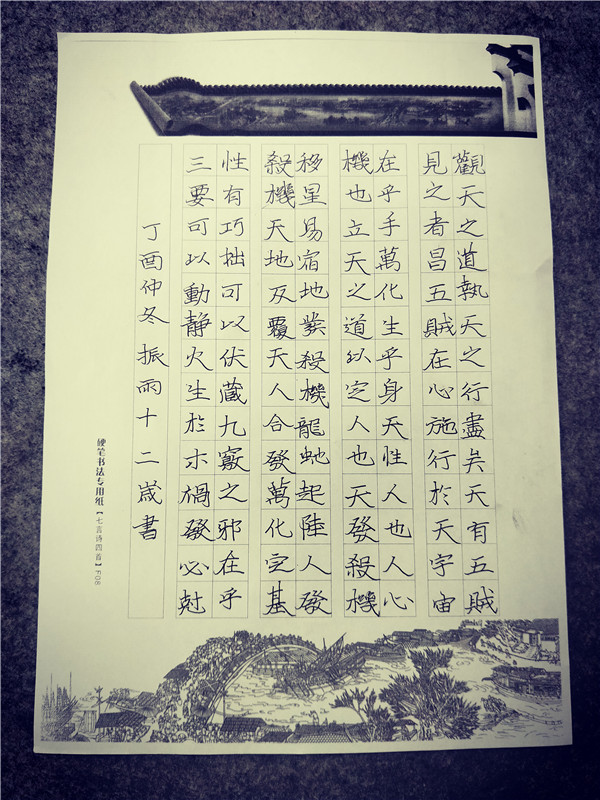 觀天之道執天之行盡矣天有五賊
見之者昌五賊在心施行於天宇宙
在乎手萬化生乎身天性人也人心
機也立天之道以定人也天發殺機
移星易宿地發殺機龍虵起陸人發
殺機天地反覆天人合發萬化定基
性有巧拙可以伏藏九竅之邪在乎
三要可以動靜火生於木禍發必尅
丁酉仲冬 振雨十二歲書
硬笔书法专用纸【七言诗四首】F06